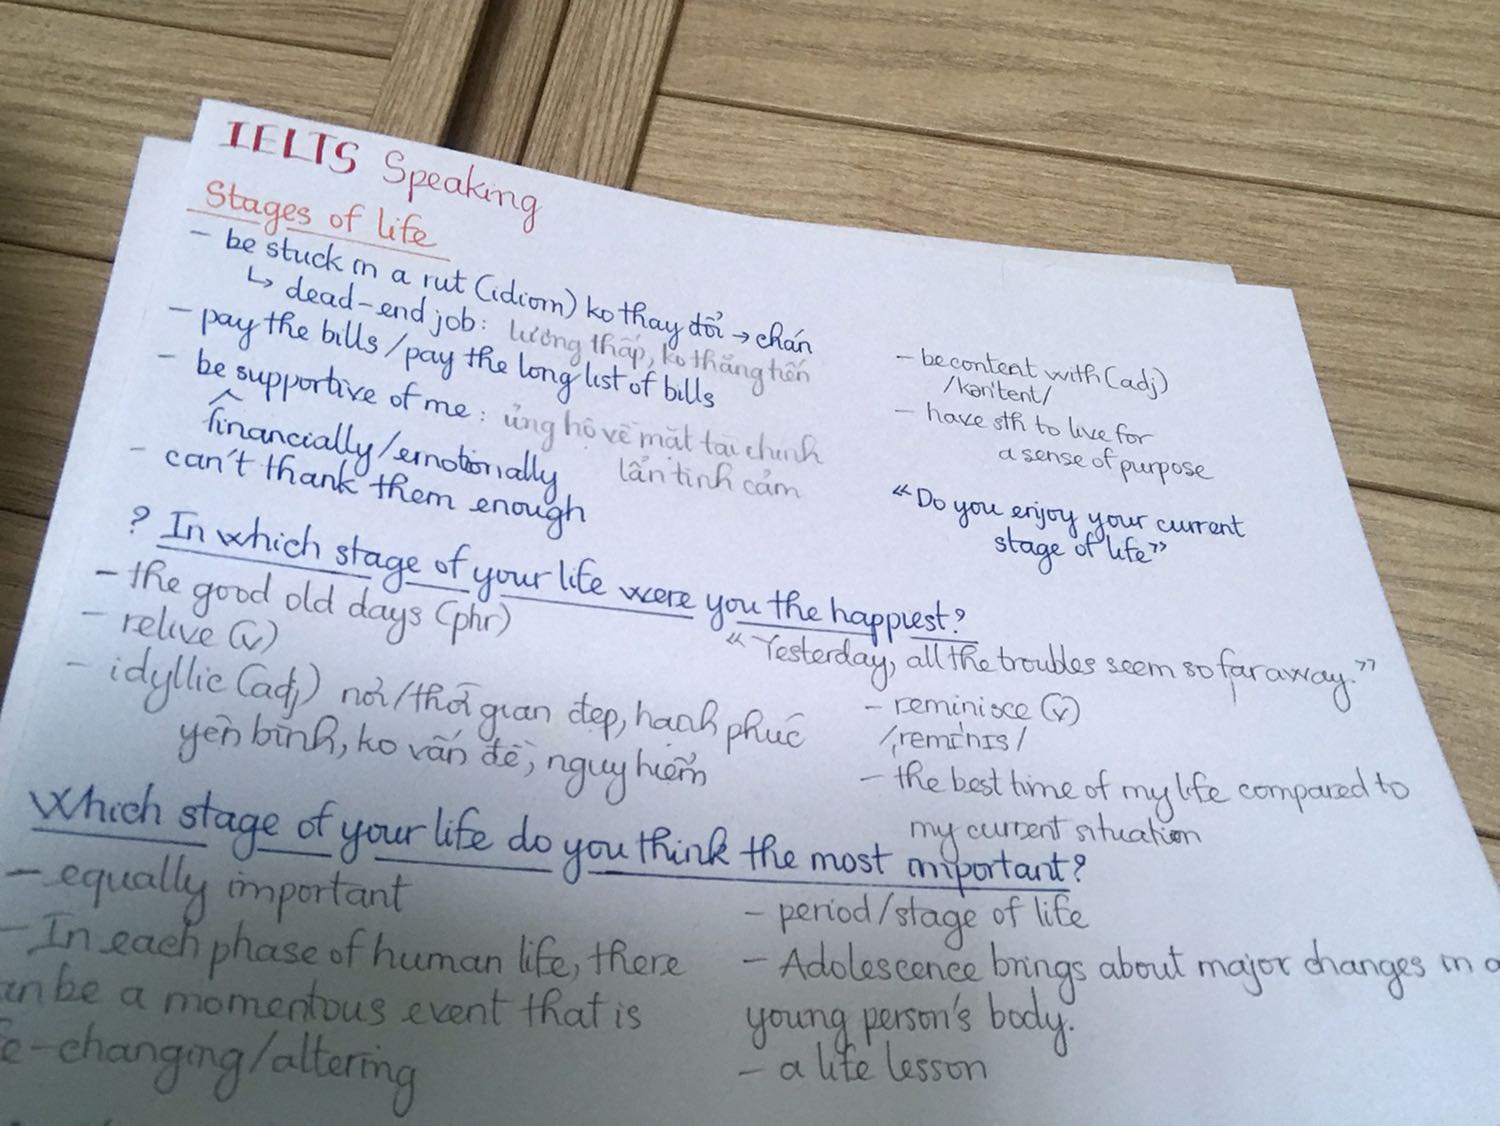 IELTS Speaking
Stages of life
- be stuck in a rut (idiom) ko thay đổi → chán
↳ dead-end job: lương thấp, ko thăng tiến
- pay the bills / pay the long list of bills
- be supportive of me: ủng hộ về mặt tài chính
financially/emotionally lẫn tình cảm
- can't thank them enough
- be content with (adj)
/kən'tent/
- have sth to live for
a sense of purpose
"Do you enjoy your current
stage of life"
? In which stage of your life were you the happiest?
- the good old days (phr)
- relive (v)
- idyllic (adj) nơi/thời gian đẹp, hạnh phúc
yên bình, ko vấn đề, nguy hiểm
"Yesterday, all the troubles seem so far away."
- reminisce (v)
/ˌremɪˈnɪs/
- the best time of my life compared to
my current situation
Which stage of your life do you think the most important?
- equally important
- In each phase of human life, there
be a momentous event that is
-changing/altering
- period/stage of life
- Adolescence brings about major changes in a
young person's body.
- a life lesson